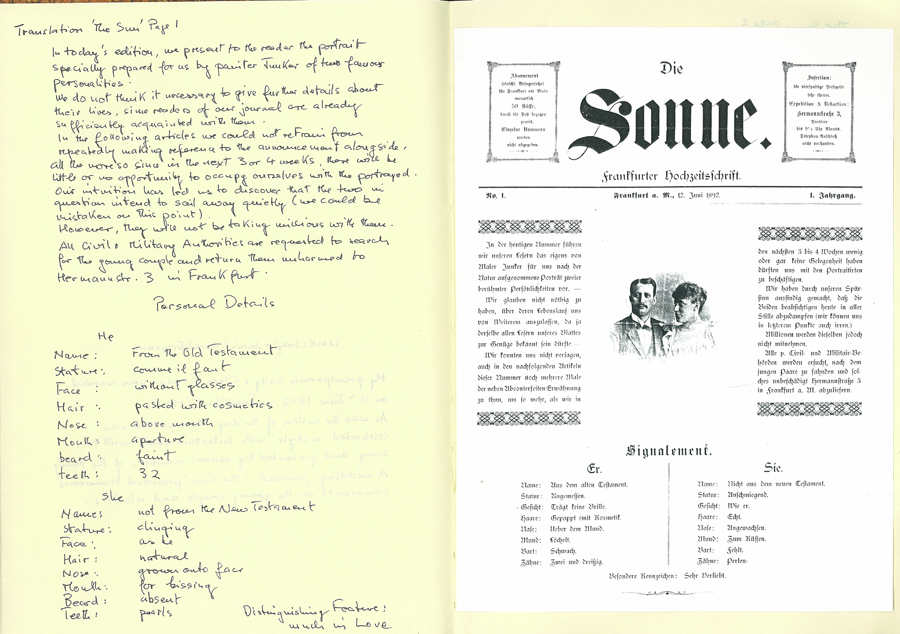 Translation 'The Sun' Page 1
In today's edition, we present to the reader the portrait
specially prepared for us by painter Junker of two famous
personalities.
We do not think it necessary to give further details about
their lives, since readers of our journal are already
sufficiently acquainted with them.
In the following articles we could not refrain from
repeatedly making reference to the announcement alongside,
all the more so since in the next 3 or 4 weeks, there will be
little or no opportunity to occupy ourselves with the portrayed.
Our intuition has led us to discover that the two in
question intend to sail away quietly (we could be
mistaken on this point).
However, they will not be taking millions with them.
All Civil & Military Authorities are requested to search
for the young couple and return them unharmed to
Hermannstr. 3 in Frankfurt.
Personal Details
He
Name: From the Old Testament
Stature: comme il faut
Face: without glasses
Hair: pasted with cosmetics
Nose: above mouth
Mouth: aperture
beard: faint
teeth: 32
She
Name: not from the New Testament
Stature: clinging
Face: as he
Hair: natural
Nose: grown onto face
Mouth: for kissing
Beard: absent
Teeth: pearls
Distinguishing Feature:
much in Love
Abonnement
(einschl. Bringerlohn)
für Frankfurt am Main
monatlich
50 Küsse,
durch die Post bezogen
Einzelne Nummern
werden
nicht abgegeben.
Die
Sonne.
Insertion:
die vierfaltige Petitzeile
sehr theuer.
Expedition & Redaction:
Hermannstraße 3,
Parterre
Telephon-Anschluß
nicht vorhanden.
Frankfurter Hochzeitschrift.
No. 1. Frankfurt a. M., 12. Juni 1892. 1. Jahrgang.
In der heutigen Nummer führen
wir unseren Lesern das eigens von
Maler Junker für uns nach der
Natur aufgenommene Porträt zweier
berühmter Persönlichkeiten vor. —
Wir glauben nicht nöthig zu
haben, über deren Lebenslauf uns
von Weiterem auszulassen, da ja
derselbe allen Lesern unseres Blattes
zur Genüge bekannt sein dürfte. —
Wir konnten uns nicht versagen,
auch in den nachfolgenden Artikeln
dieser Nummer noch mehrere Male
der neben Abconterfeiten Erwähnung
zu thun, um so mehr, als wir in
des nächsten 3 bis 4 Wochen wenig
oder gar keine Gelegenheit haben
dürften uns mit den Portraitirten
zu beschäftigen.
Wir haben durch unseren Spür-
sinn ausfindig gemacht, daß die
Beiden beabsichtigen heute in aller
Stille abzudampfen (wir können uns
in letzterem Punkte auch irren.)
Millionen werden dieselben jedoch
nicht mitnehmen.
Alle p. Civil- und Militair-Be-
hörden werden ersucht, nach dem
jungen Paare zu fahnden und sol-
ches unbeschädigt Hermannstraße 3
in Frankfurt a. M. abzuliefern.
Signalement.
Er.
Name: Aus dem alten Testament.
Statur: Angemessen.
Gesicht: Trägt keine Brille.
Haare: Gepappt mit Kosmetik.
Nase: Ueber dem Mund.
Mund: Löchelt.
Bart: Schwach.
Zähne: Zwei und dreißig.
Sie.
Name: Nicht aus dem neuen Testament.
Statur: Anschmiegend.
Gesicht: Wie er.
Haare: Echt.
Nase: Angewachsen.
Mund: Zum Küssen.
Bart: Fehlt.
Zähne: Perlen.
Besondere Kennzeichen: Sehr Verliebt.